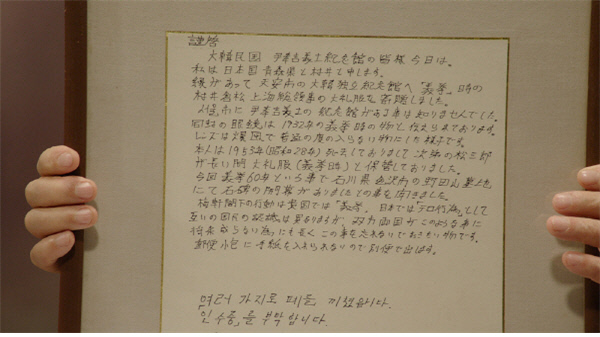 謹啓
大韓民国 尹奉吉義士紀念館の皆様 今日は。
私は日本国青森県と村井と申します。
縁があって天安市の大韓独立紀念館へ「義挙」時の
村井倉松上海総領事の大礼服を寄贈しました。
に尹奉吉義士の紀念館がある事は知りませんでした。
同封の眼鏡は1932年の義挙時の物と伝えられております。
レンズは爆風で 度の入らない物にした様子です。
本人は1953年(昭和28年)死去しておりまして 次弟の松三郎
が長い間大礼服(義挙時)と保管しておりました。
今回義挙60年という事で石川県金沢市の野田山墓地
にて石碑の除幕がありましたとの事を聞きました。
梅軒閣下の行動は貴国では「義挙」日本では「テロ行為」として
互いの国民の認識は異なりますが、双方両国がこのような事に
将来成らない為にも長くこの事を忘れないでおきたい物です。
郵便小包に手紙を入れられないので別便で出します。
여러 가지로 폐를 끼쳤읍니다.
인수증,를 부탁합니다.